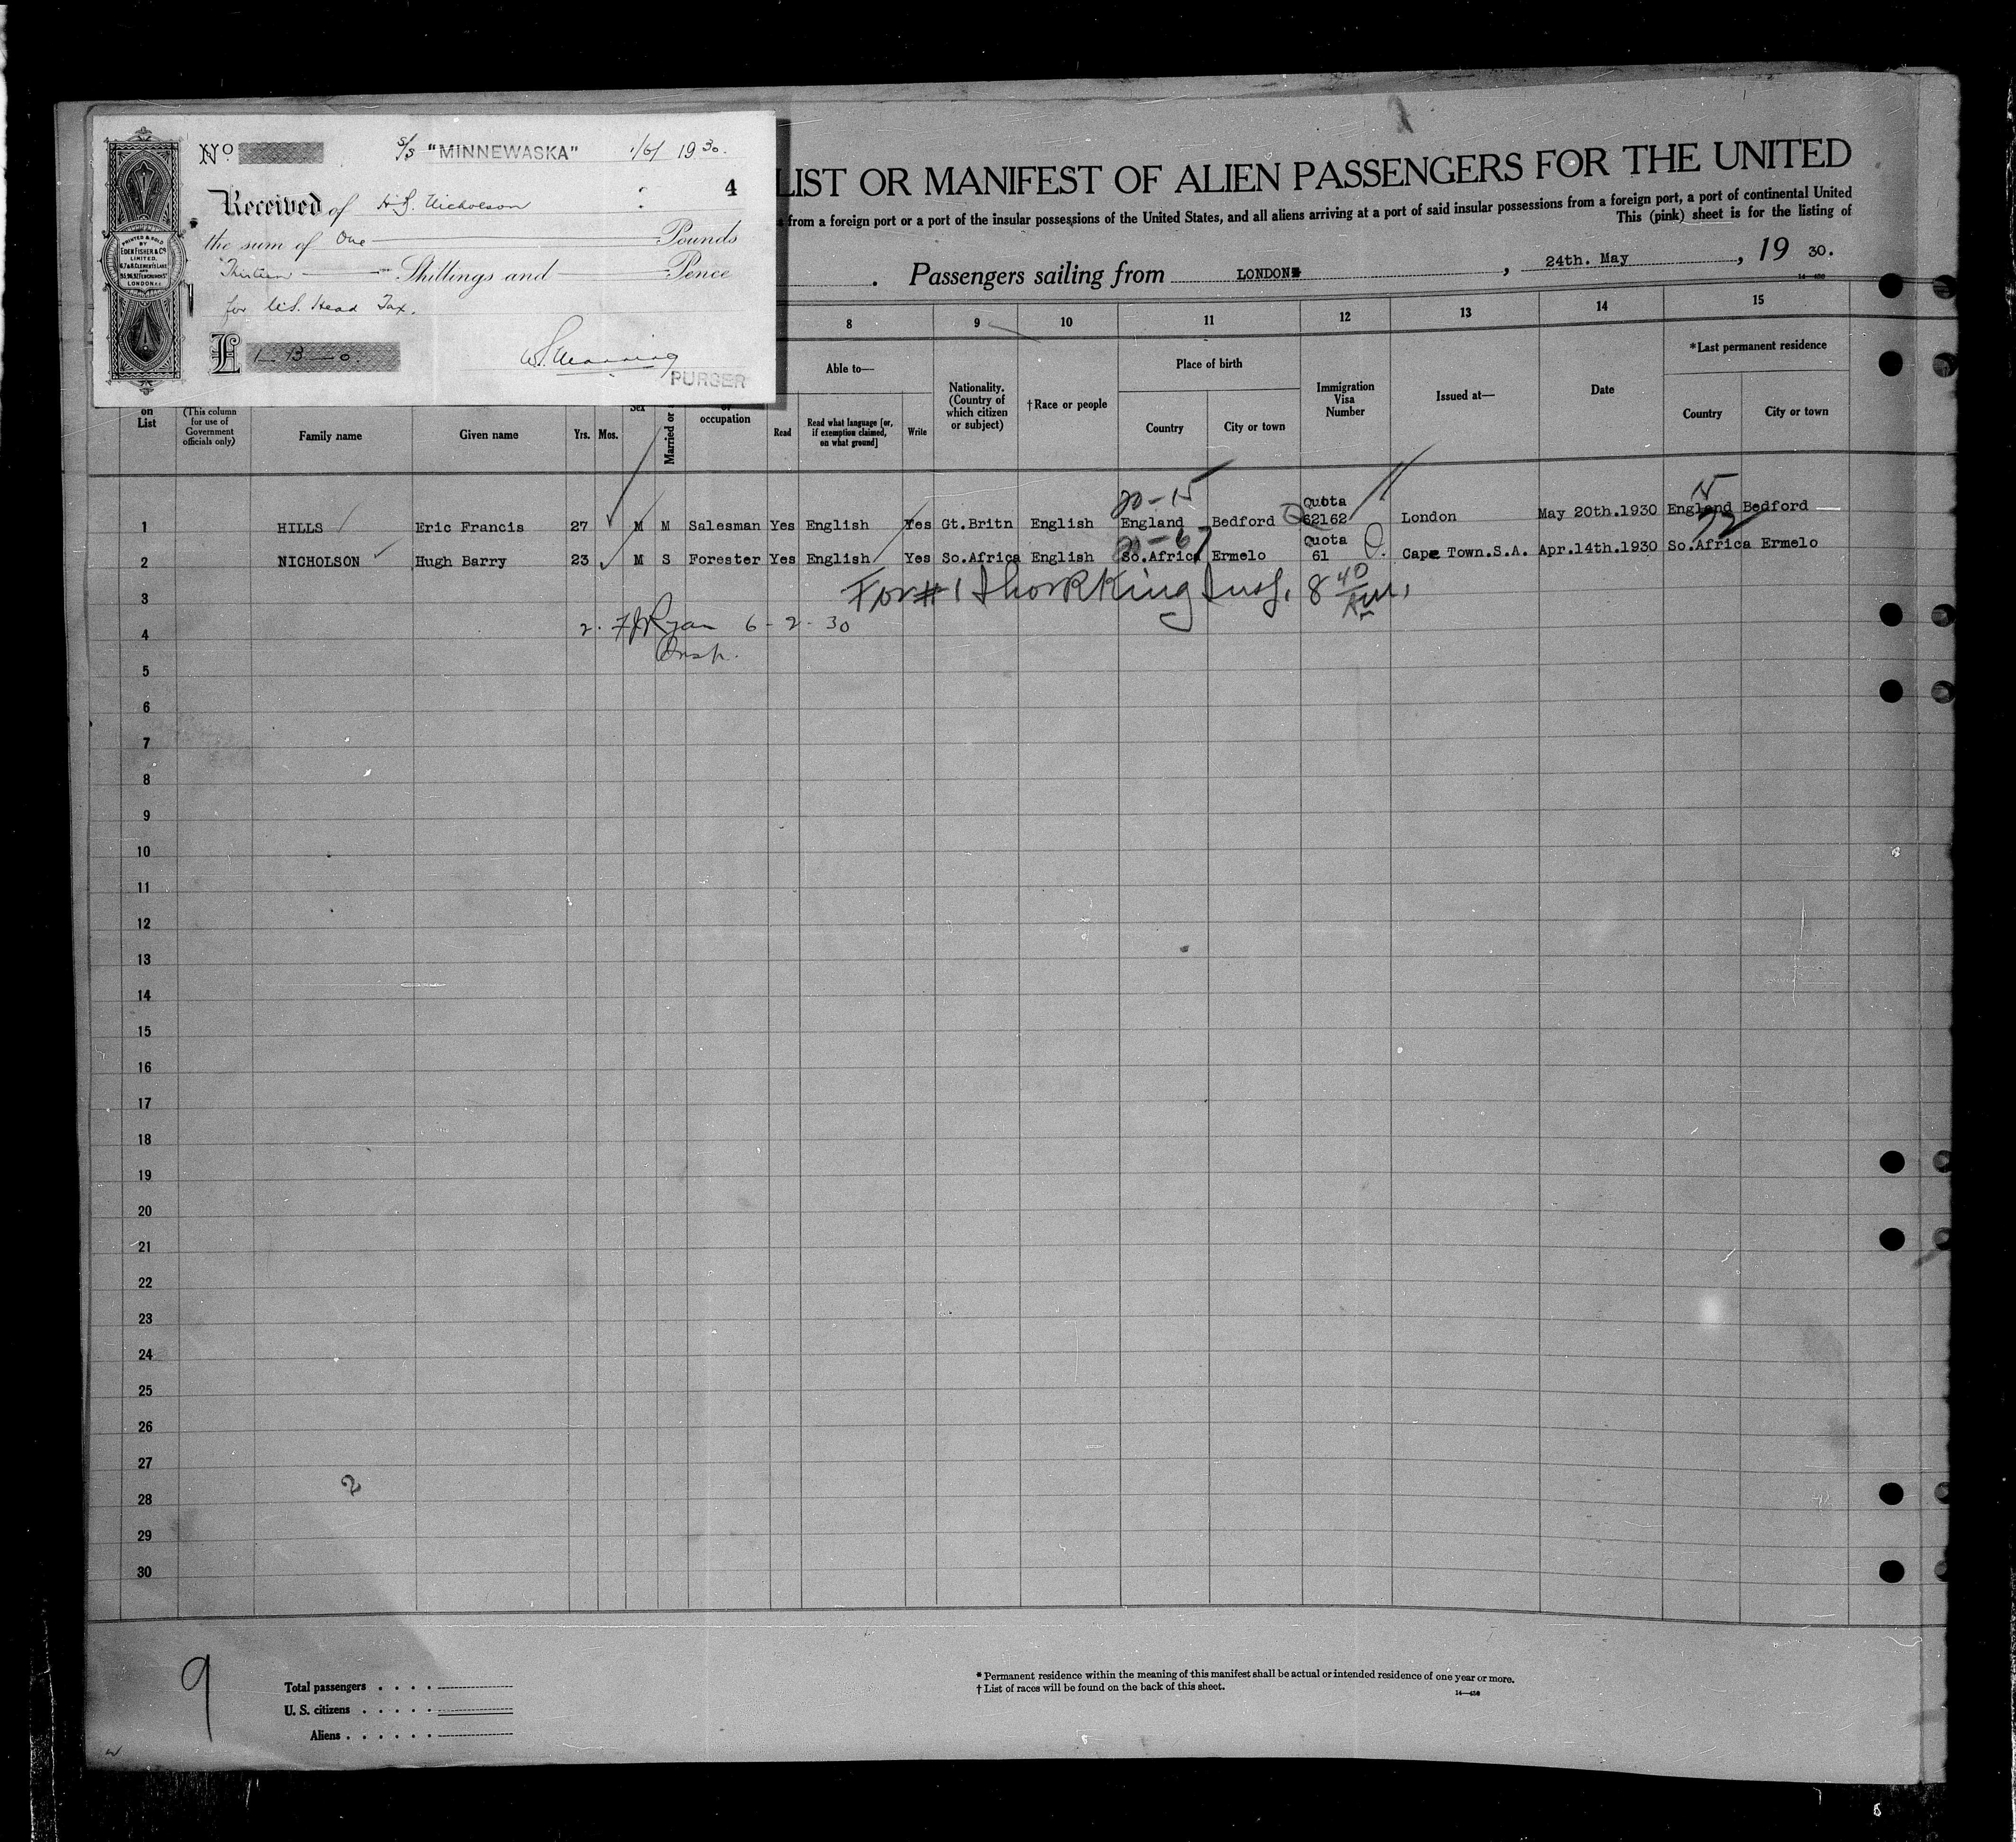 No S/S "MINNEWASKA" 1/6/ 1930.
4
Received of H B. Nicholson
the sum of One Pounds
Thirteen Shillings and Pence
for U.S. Head Tax.
£ 1 - 13 - 0
PURSER
PRINTED & SOLD
BY
EDEN FISHER & Co
LIMITED.
LONDON E.C.
LIST OR MANIFEST OF ALIEN PASSENGERS FOR THE UNITED
from a foreign port or a port of the insular possessions of the United States, and all aliens arriving at a port of said insular possessions from a foreign port, a port of continental United
This (pink) sheet is for the listing of
Passengers sailing from LONDON , 24th. May , 19 30.
8 9 10 11 12 13 14 15
on List
(This column for use of Government officials only)
Family name
Given name
Yrs. Mos.
Sex
Married or
or occupation
Able to—
Read
Read what language [or, if exemption claimed, on what ground]
Write
Nationality. (Country of which citizen or subject)
†Race or people
Place of birth
Country
City or town
Immigration Visa Number
Issued at—
Date
*Last permanent residence
Country
City or town
20-15 15
1 HILLS Eric Francis 27 M M Salesman Yes English Yes Gt.Britn English England Bedford Quota 62162 London May 20th.1930 England Bedford
20-67 72
2 NICHOLSON Hugh Barry 23 M S Forester Yes English Yes So.Africa English So.Africa Ermelo Quota 61 Cape Town.S.A. Apr.14th.1930 So.Africa Ermelo
3 For #1 King Insp. 8 40 A.M.
4 2. F J Ryan 6-2-30
Insp.
5
6
7
8
9
10
11
12
13
14
15
16
17
18
19
20
21
22
23
24
25
26
27
2
28
29
30
9
Total passengers
U. S. citizens
Aliens
* Permanent residence within the meaning of this manifest shall be actual or intended residence of one year or more.
† List of races will be found on the back of this sheet.